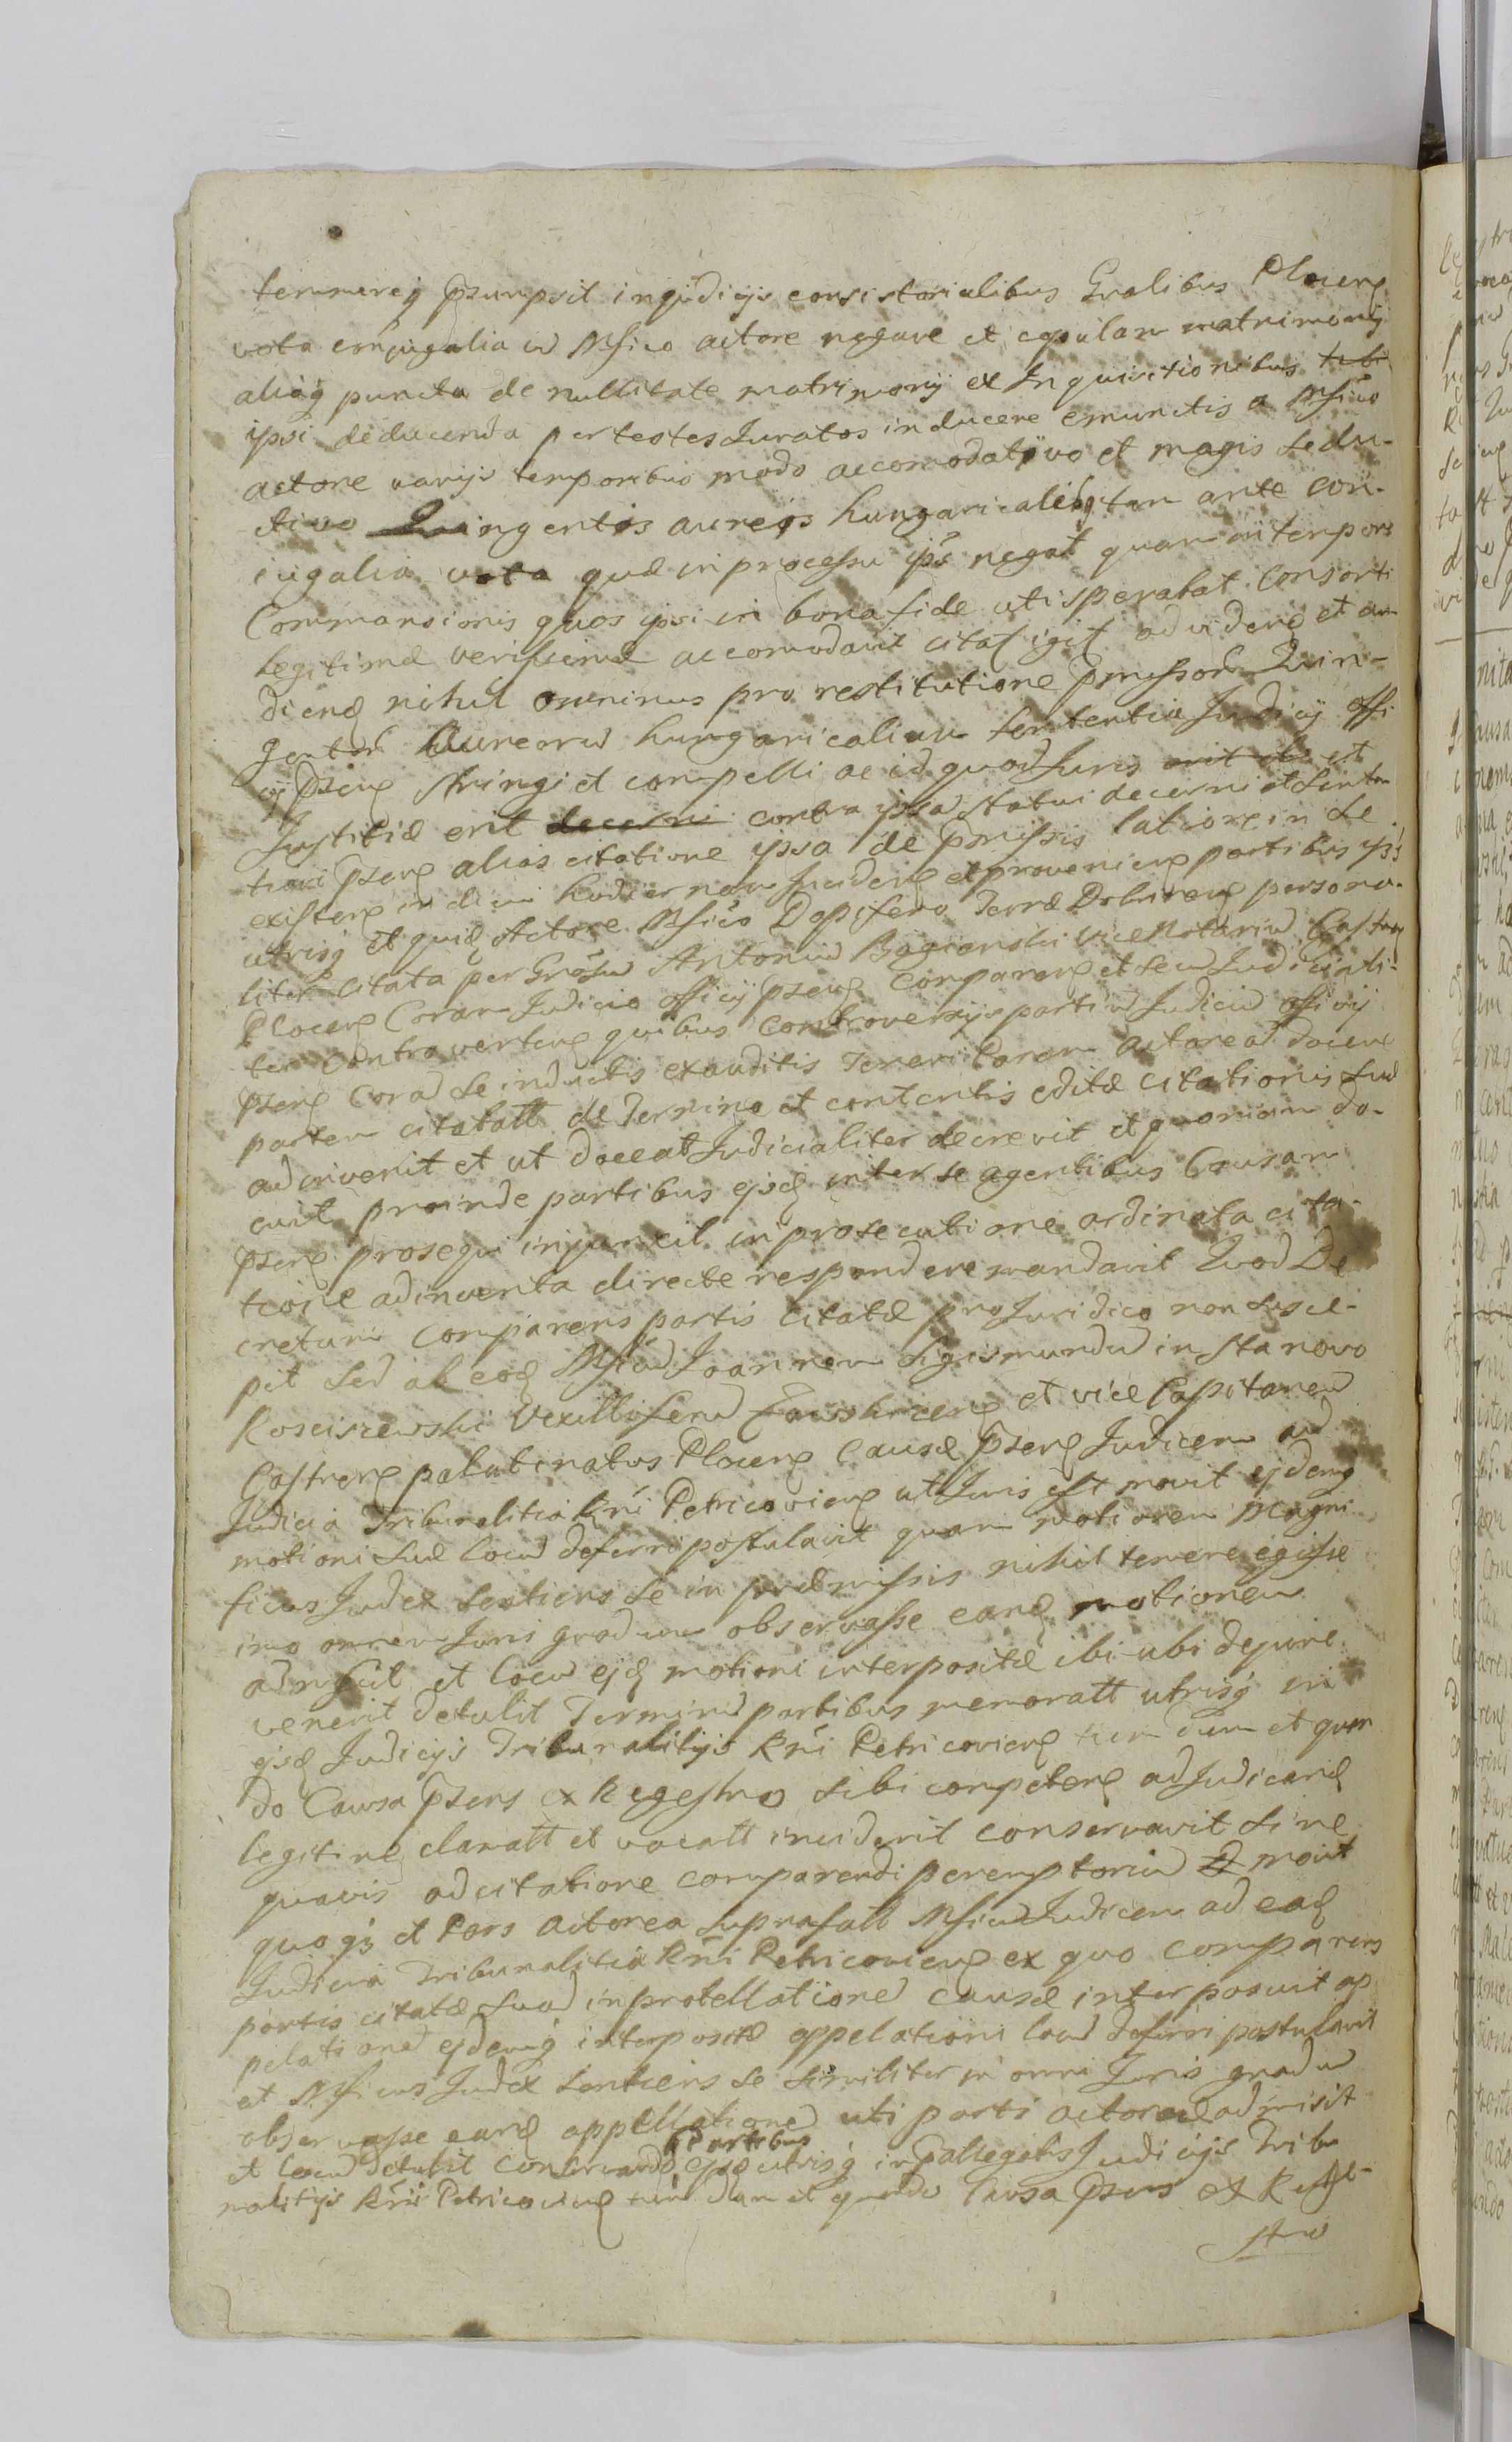 temereq̃ p̃sumpsit in judicijs consistorialibus Gnalibus Plocen̄
vota conjugalia cū Mfico actore negare et copulam matrimonij
aliaq̃ puncta de nullitate matrimonij ex Inquisitionibus
ipsi deducenda per testes Juratos inducere emunctis a Mfico
actore varijs temporibus modo accomodatiivo et magis sedu-
ctivo Quingentis aureis hungaricalibq̃ tam ante con-
iugalia vota quæ in processu ips̄ negat quam in tempore
Commansionis quos ipsi in bona fide uti sperabat Consorti
legitimæ verissimæ accomodavit citat̄ igit̄ ad viden̄ et au-
dien̄ nihil ominus pro restitutione p̄missor̄ Quin-
gentor̄ Aureorū hungaricalium sententia Judicij offi
cij p̄sen̄ stringi et compelli ac id quod Juris et
Justitiæ erit decerni contra ipsā statui decerni et senten
tiari p̄sen̄ alias citatione ipsa de p̄missis latiore in se
existen̄ in diem hodiernam Inciden̄ et provenien̄ partibus ips̄
utrisq̃ et quid̄ Actore Mfico Dapifero Terræ Dobrinen̄ persona-
liter Citata per Gn̄osū Antoniū Bogienski Vice Notariū Castren̄
Plocen̄ Coram Judicio officij p̄sen̄ Comparen̄ et seu Judicialiti-
ter Controverten̄ quibus Controversijs partiū Judiciū officij
p̄sen̄ Corā se inductis exauditis Teneri Parem actoreā docere
partem citatatt de Termino et contentis editæ citationis suæ
adinvenit et ut doceat Judicialiter decrevit et quoniam do-
cuit proinde partibus ejsd̄ inter se agentibus Causam
p̄sen̄ prosequi injunxit in prosecutione ordinata cita-
tione adinventa directe respondere mandavit Quod De
cretum Comparens partis Citatæ pro Juridico non susce-
pit sed ab eod̄ Mficū Joannem Sigismundū in Stanovo
Kosciszewski Vexilliferū Zawskrzen̄ et vice Capitaneū
Castren̄ palatinatus Plocen̄ Causæ p̄sen̄ Judicem ad
Judicia Tribunalitia Rn̄i Petricovien̄ ut Juris est movit ejdemq̃
motioni suæ locū deferri postulavit quam motionem Magni
ficus Judex sentiens se in præmissis nihil temere egisse
imo omnem Juris gradum observasse eand̄ motionem
admisit et locū ejd̄ motioni interpositæ ibi ubi de jure
venerit detulit Terminū partibus memoratt utrisq̃ in
ejsd̄ Judicijs Tribunalitijs Rn̄i Petricovien̄ tum dum et quan
do Causa p̄sens ex Regestro sibi competen̄ ad Judicand̄
legitime clamatt et vocatt inciderit conservavit sine
quavis adcitatione comparendi peremptoriū movit
quoq̃ et Pars Actorea suprafatt Mficū Judicem ad ead̄
Judicia Tribunalitia Rn̄i Petricovien̄ ex quo comparens
partis citatæ suā in protellationē causæ interposuit ap
pelationē ejdemq̃ interpositæ appelationi locū deferri postulavit
et Mficus Judex sentiens se similiter in omni Juris gradū
observasse eand̄ appellationē uti parti actoreæ admisit
et locū detulit conservand̄ Partibus ejsd̄ utrisq̃ in p̄allegatis Judicijs Tribu
nalitijs Rn̄i Petricovien̄ tum dum et quando Causa p̄sens ex Rege-
stro